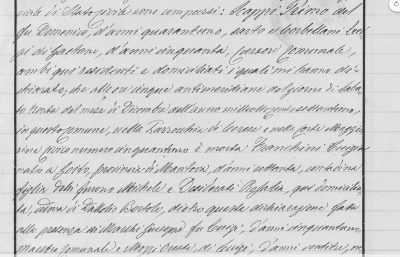 ciale di Stato civile sono comparsi: Stoppi Irio del
fu Domenico, d'anni quarantuno, sarto e Corbellani Luigi
di Gaetano, d'anni cinquanta, cursore comunale,
ambi qui residenti e domiciliati i quali mi hanno di-
chiarato, che alle ore cinque antimeridiane del giorno di saba-
to trenta del mese di Dicembre dell'anno
in questo comune, nella Parrocchia di e nella Corte
civico numero cinquantuno è morta Franchini
nata a Goito, provincia di Mantova, d'anni settanta, contadina
figlia delli furono Michele e Rosalia, qui domicilia-
ta, vedova di Bortolo, dietro questa dichiarazione fatta
alla presenza di Giuseppe fu Luigi, d'anni cinquantuno
maestro comunale e Mozzi Oreste, di Luigi, d'anni ventitre,